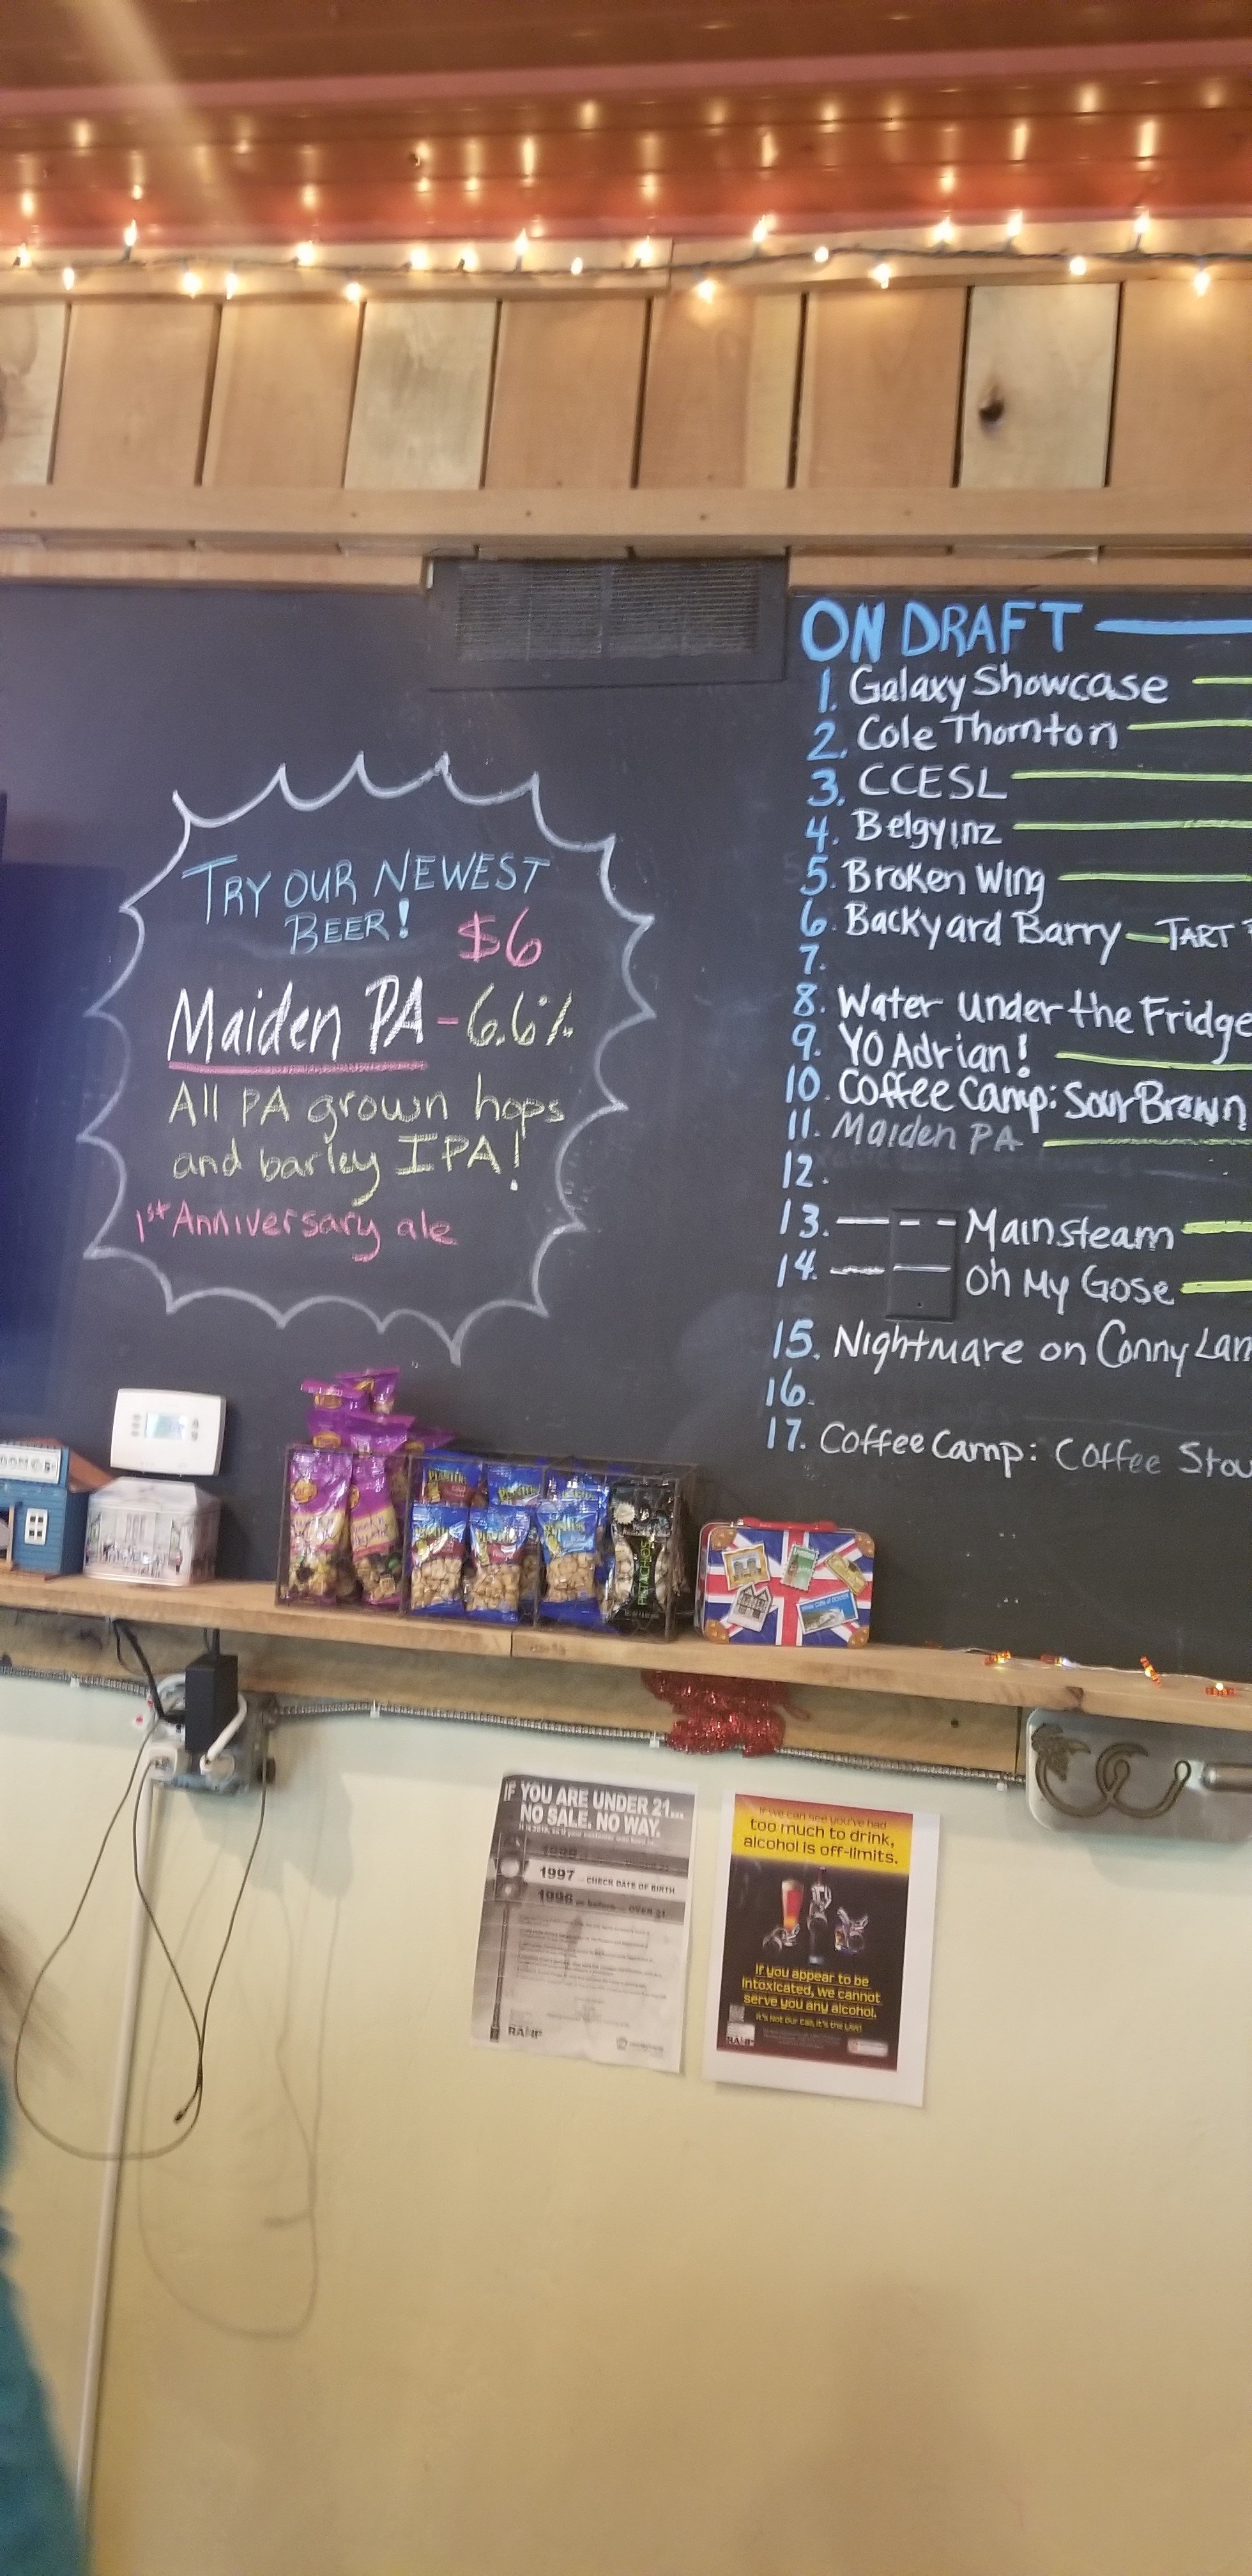 TRY OUR NEWEST
BEER! $6
Maiden PA - 6.6%
All PA grown hops
and barley IPA!
1st Anniversary ale
ON DRAFT
1. Galaxy Showcase
2. Cole Thornton
3. CCESL
4. Belgyinz
5. Broken Wing
6. Backyard Barry - TART
7.
8. Water Under the Fridge
9. YO Adrian!
10. Coffee Camp: Sour Brown
11. Maiden PA
12.
13. Mainsteam
14. Oh My Gose
15. Nightmare on Conny Lan
16.
17. Coffee Camp: Coffee Stou
PLANTERS
PISTACHIOS
IF YOU ARE UNDER 21...
NO SALE. NO WAY.
1998
1997 - CHECK DATE OF BIRTH
1996 or before - OVER 21
RAMP
If we can see you've had
too much to drink,
alcohol is off-limits.
If you appear to be
intoxicated, we cannot
serve you any alcohol.
It's Not Our Call, It's the Law!
RAMP